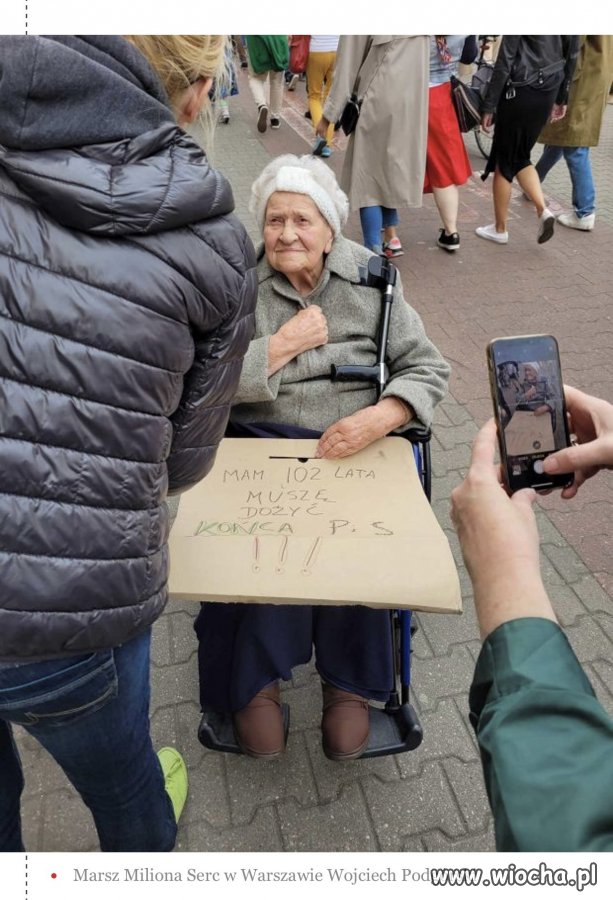 MAM 102 LATA
MUSZĘ
DOŻYĆ
KOŃCA PiS
!!!
Marsz Miliona Serc w Warszawie Wojciech
www.wiocha.pl